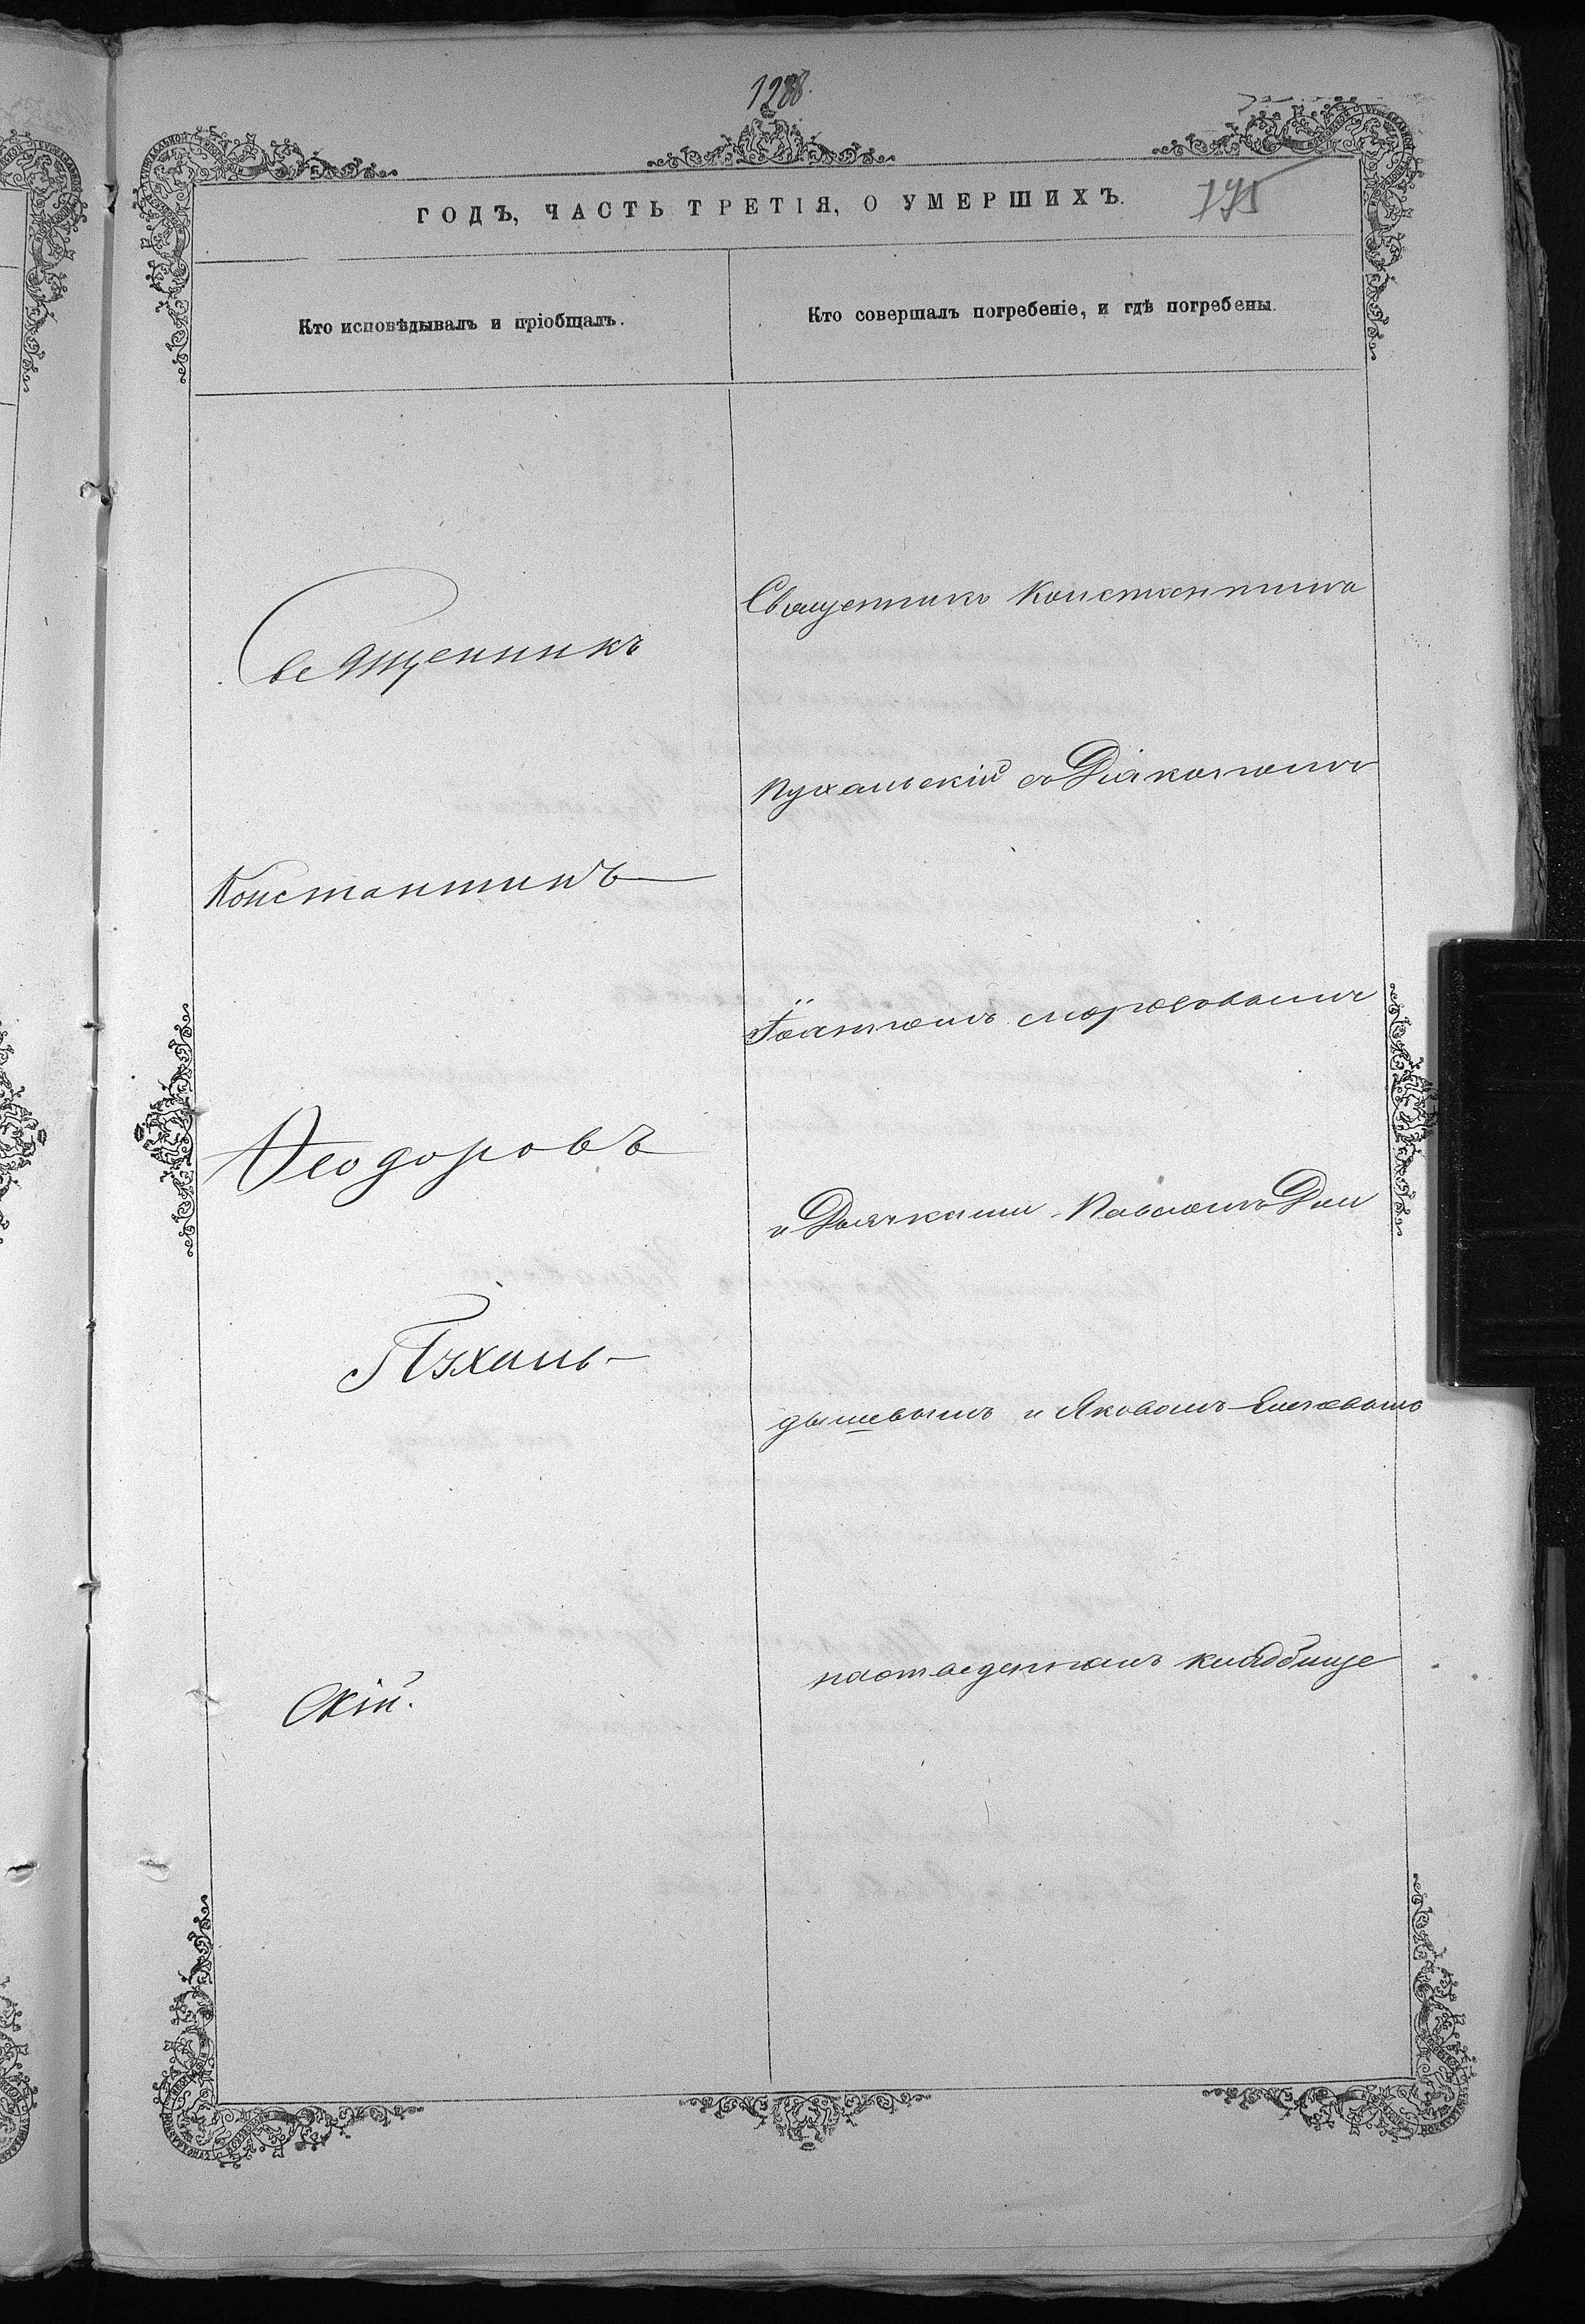 1288.
ГОДЪ, ЧАСТЬ ТРЕТІЯ, О УМЕРШИХЪ.
195
Кто исповѣдывалъ и пріобщалъ.
Кто совершалъ погребеніе, и гдѣ погребены.
Священникъ
Константинъ
Ѳеодоровъ
Пухаль-
скій.
Священникъ Константинъ
Пухальскій съ Діакономъ
и Дьячками Павломъ Дми
и Яковомъ
кладбище